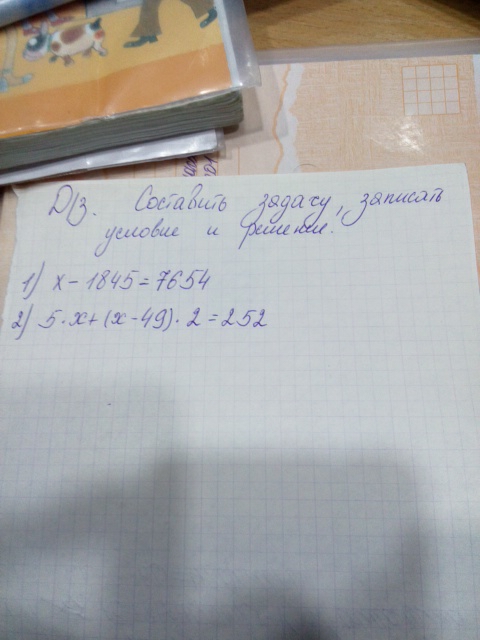 Д/з. Составить задачу, записать
условие и решение.
1) x - 1845 = 7654
2) 5 · x + (x - 49) · 2 = 252